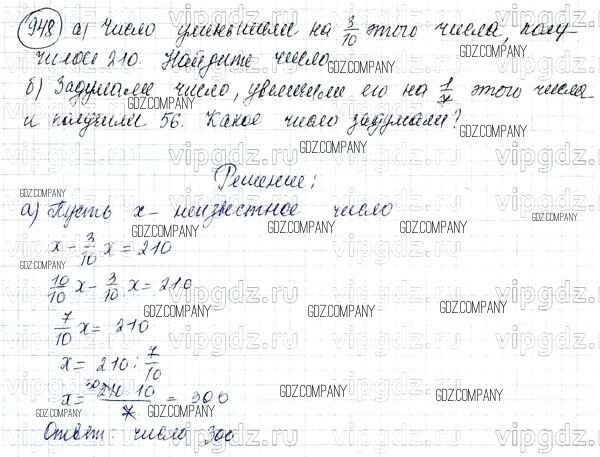 948 а) Число уменьшили на 3/10 этого числа, полу-
чилось 210. Найдите число.
б) Задумали число, увеличили его на 1/7 этого числа
и получили 56. Какое число задумали?
Решение:
а) Пусть x – неизвестное число
x - 3/10 x = 210
10/10 x - 3/10 x = 210
7/10 x = 210
x = 210 : 7/10
x = 30 210 · 10 / 7 = 300
Ответ: число 300
GDZ.COMPANY
vipgdz.ru